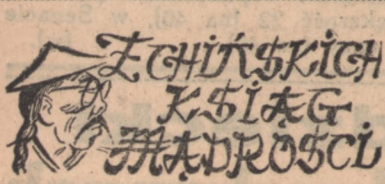 Z CHIŃSKICH
KSIĄG
MĄDROŚCI